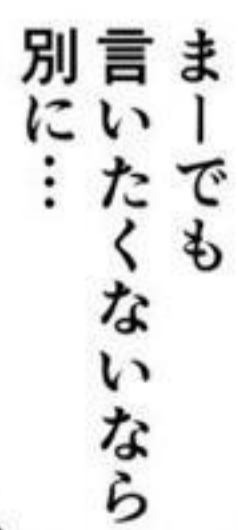 まーでも
言いたくないなら
別に…